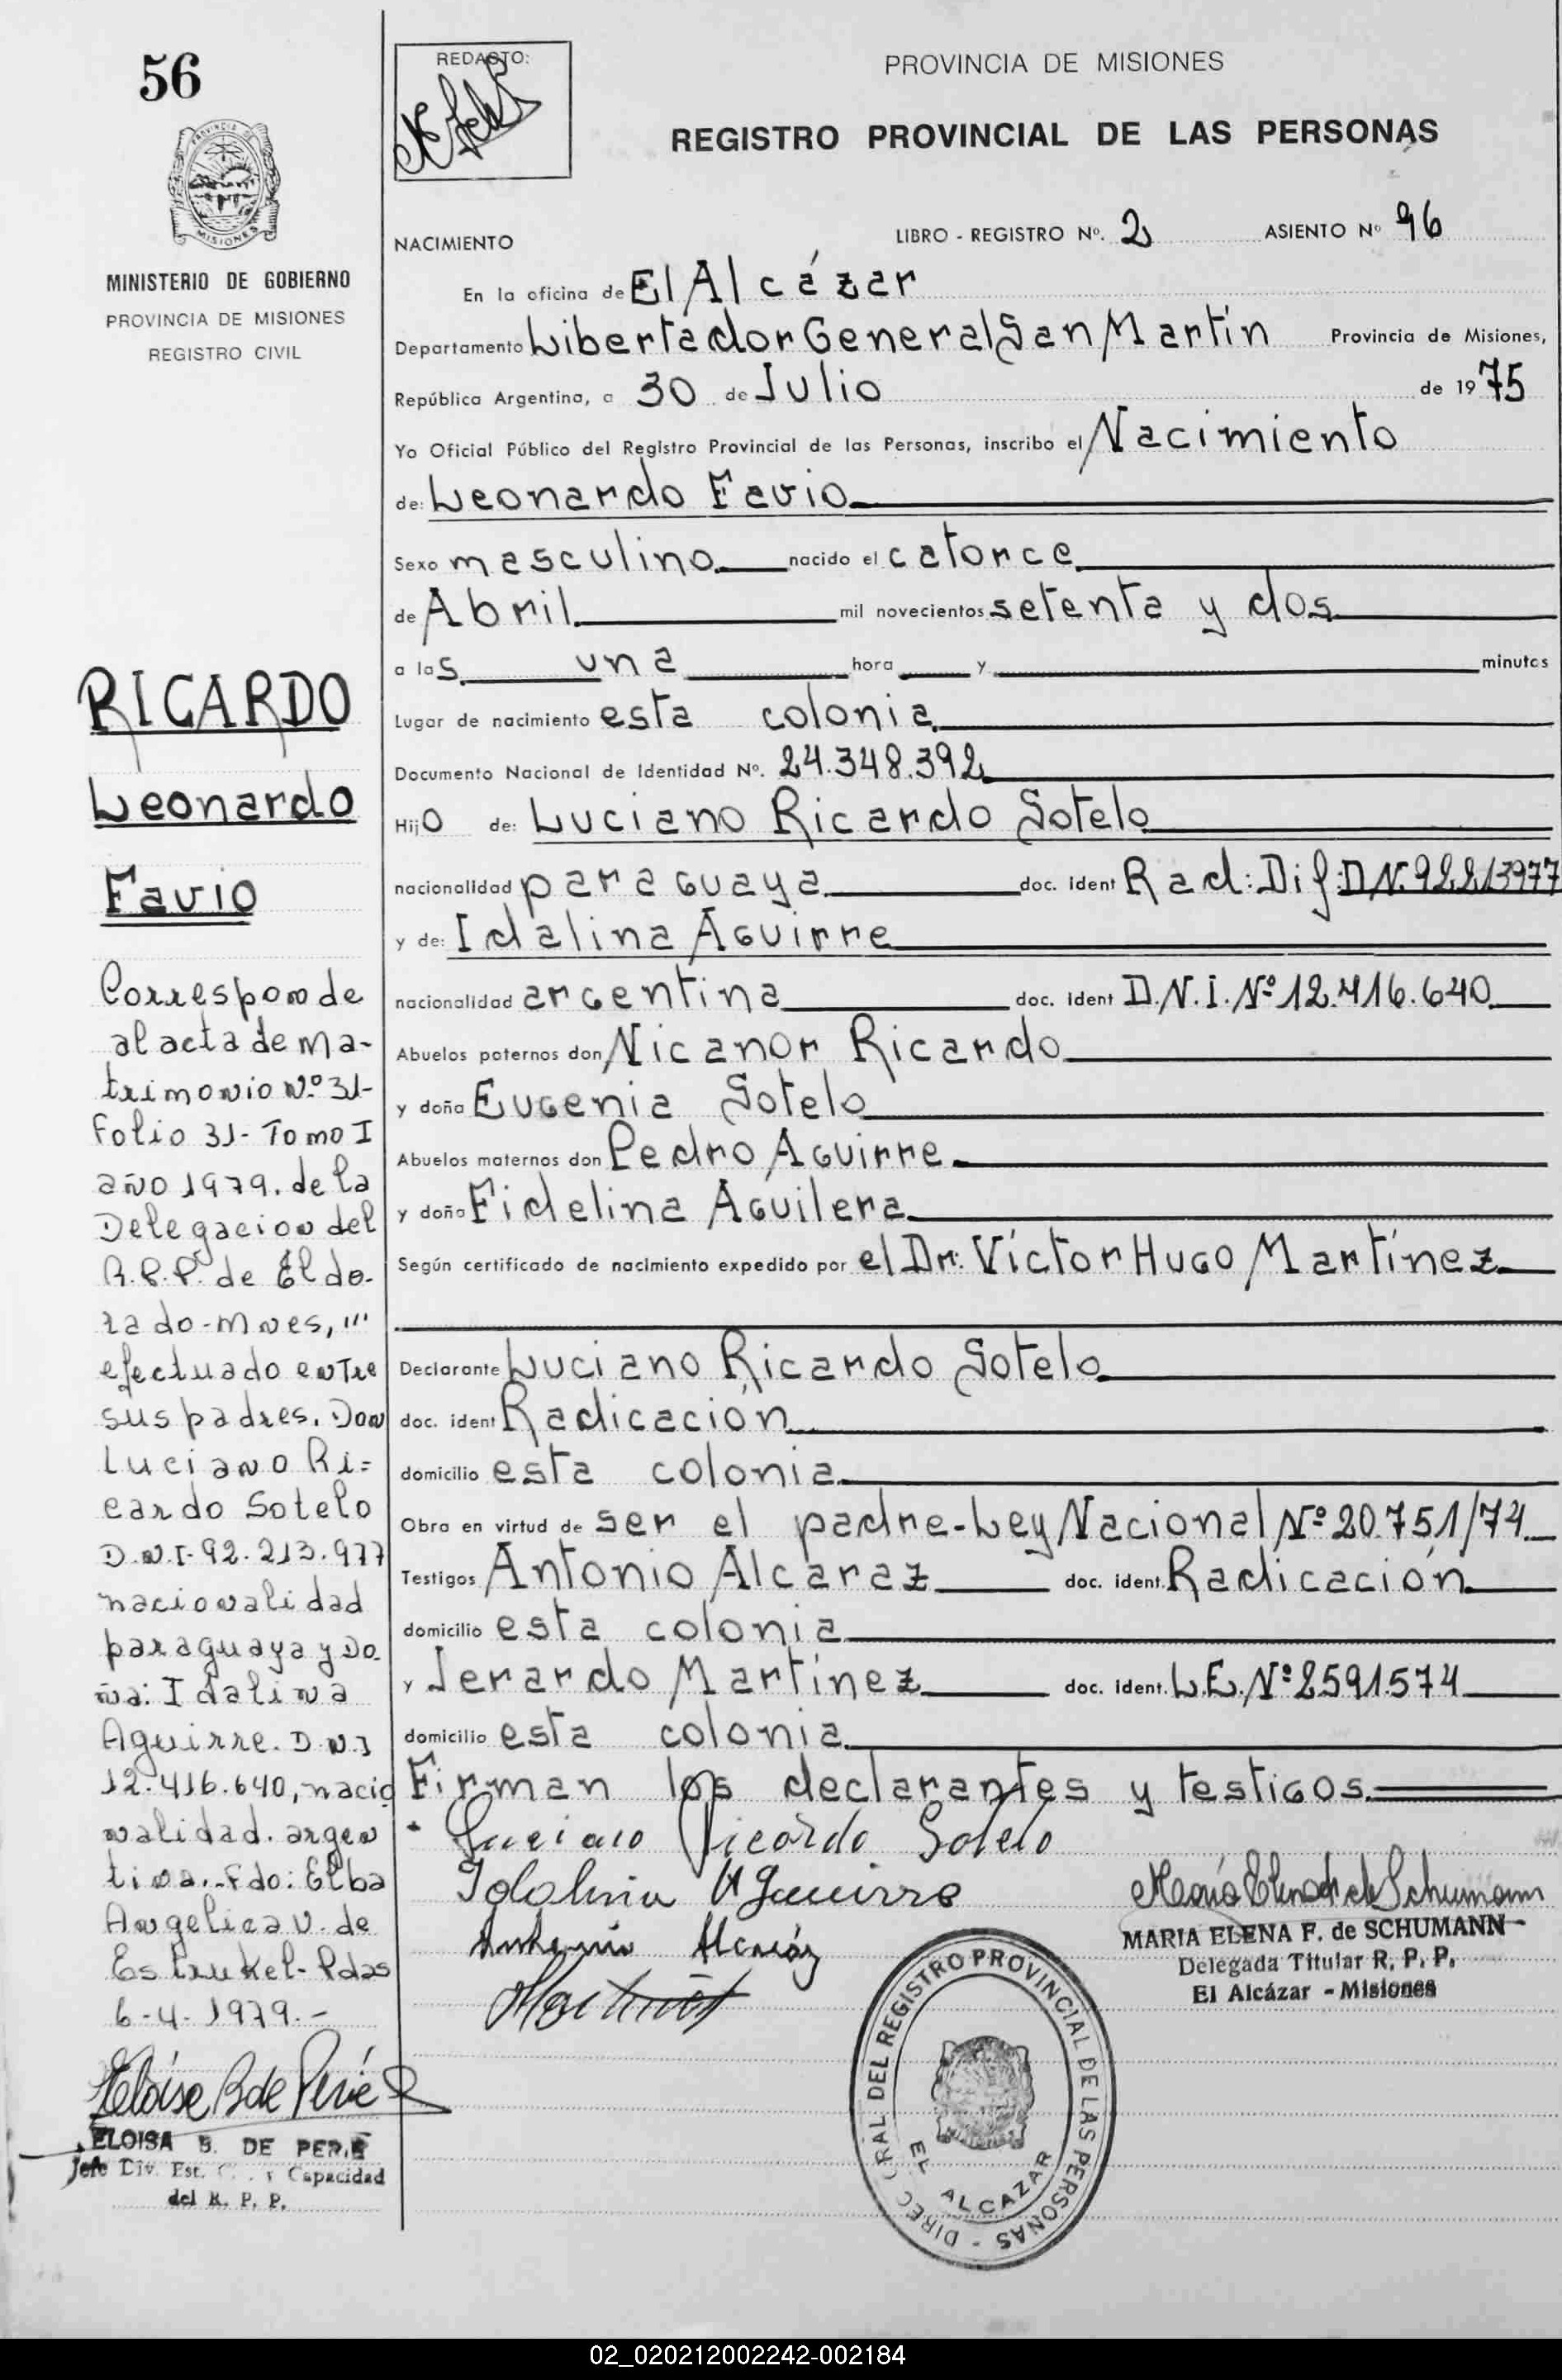 56
MINISTERIO DE GOBIERNO
PROVINCIA DE MISIONES
REGISTRO CIVIL
RICARDO
Leonardo
Favio
Corresponde
al acta de ma-
trimonio Nº 31-
Folio 31- Tomo I
año 1979. de la
Delegacion del
R.P.P. de Eldo-
rado-mnes, '''
efectuado entre
sus padres. Don
Luciano Ri=
cardo Sotelo
D.N.I- 92.213.977
nacionalidad
paraguaya y Do
ña: Idalina
Aguirre. D.N.I
12.416.640, nacio
nalidad. argen
tina.-Fdo: Elba
Angelica V. de
Estrukel- Pdas
6-4-1979.-
ELOISA B. DE PERIE
Jefe Div. Est. C. y Capacidad
del R. P. P.
REDACTO:
PROVINCIA DE MISIONES
REGISTRO PROVINCIAL DE LAS PERSONAS
NACIMIENTO LIBRO - REGISTRO Nº. 2 ASIENTO Nº 96
En la oficina de El Alcázar
Departamento Libertador General San Martín Provincia de Misiones,
República Argentina, a 30 de Julio de 1975
Yo Oficial Público del Registro Provincial de las Personas, inscribo el Nacimiento
de: Leonardo Favio
Sexo masculino nacido el catorce
de Abril mil novecientos setenta y dos
a las una hora y minutos
Lugar de nacimiento esta colonia
Documento Nacional de Identidad Nº. 24.348.392
Hijo de: Luciano Ricardo Sotelo
nacionalidad paraguaya doc. ident Rad: Dif: D.N. 92213977
y de: Idalina Aguirre
nacionalidad argentina doc. ident D.N.I. Nº 12.416.640
Abuelos paternos don Nicanor Ricardo
y doña Eugenia Sotelo
Abuelos maternos don Pedro Aguirre
y doña Fidelina Aguilera
Según certificado de nacimiento expedido por el Dr. Víctor Hugo Martínez
Declarante Luciano Ricardo Sotelo
doc. ident Radicación
domicilio esta colonia
Obra en virtud de ser el padre-Ley Nacional Nº 20.751/74
Testigos Antonio Alcaraz doc. ident. Radicación
domicilio esta colonia
y Jerardo Martínez doc. ident. L.E. Nº 2591574
domicilio esta colonia
Firman los declarantes y testigos
Luciano Ricardo Sotelo
Idalina Aguirre
Antonio Alcaráz
Martinez
MARIA ELENA F. de SCHUMANN
Delegada Titular R. P. P.
El Alcázar - Misiones
DIREC. GRAL DEL REGISTRO PROVINCIAL DE LAS PERSONAS -
EL ALCAZAR
02_020212002242-002184